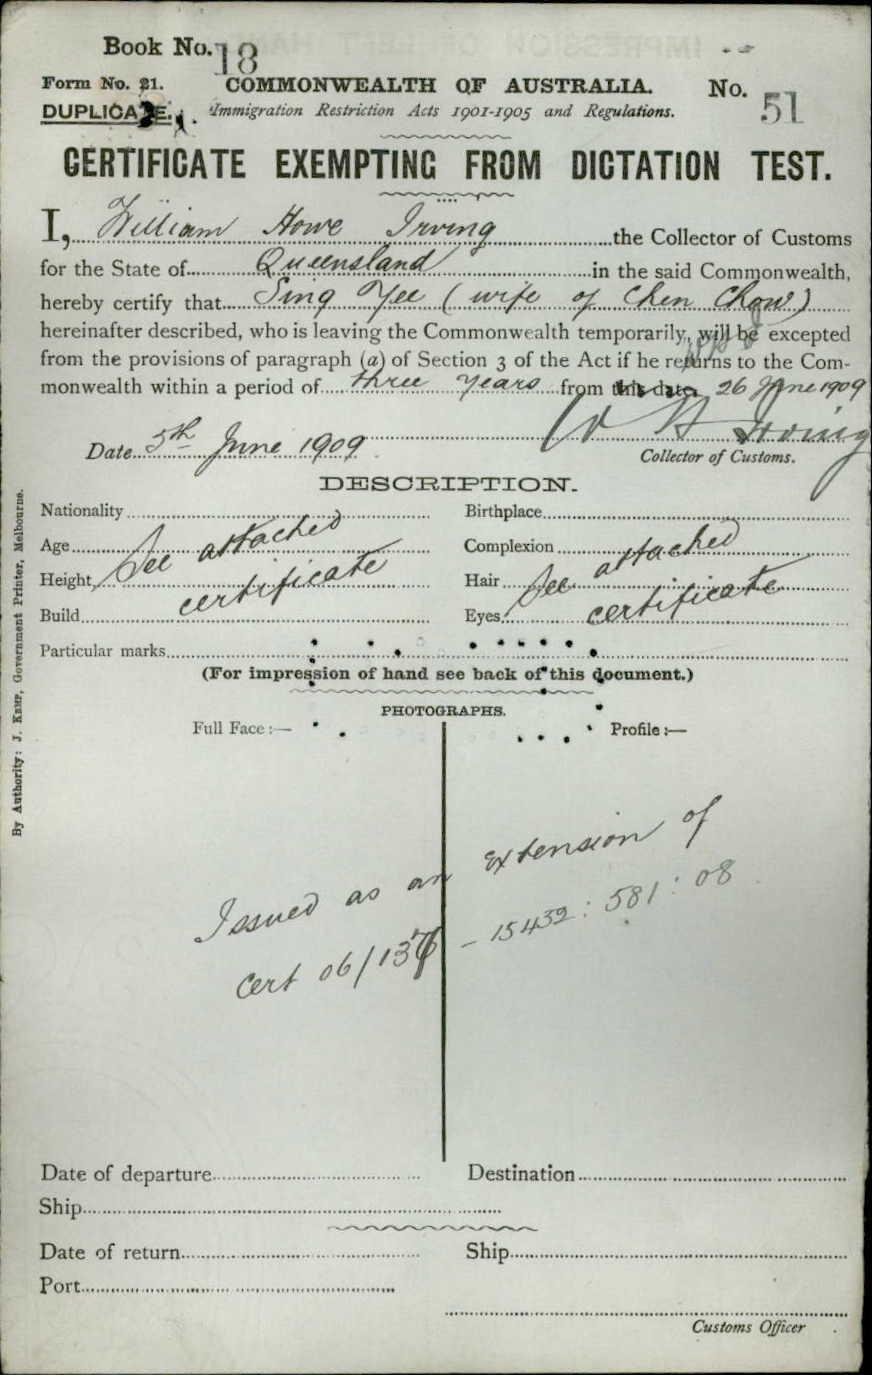 Book No. 18
Form No. 21. COMMONWEALTH OF AUSTRALIA. No. 51
DUPLICATE. Immigration Restriction Acts 1901-1905 and Regulations.
CERTIFICATE EXEMPTING FROM DICTATION TEST.
I, William Howe Irving the Collector of Customs
for the State of Queensland in the said Commonwealth,
hereby certify that Sing Yee (wife of Chen Chow)
hereinafter described, who is leaving the Commonwealth temporarily, will be excepted
from the provisions of paragraph (a) of Section 3 of the Act if he returns to the Com-
monwealth within a period of three years from this date 26 June 1909
W H Irving
Date 5th June 1909
Collector of Customs.
DESCRIPTION.
Nationality Birthplace
Age See attached Complexion attached
Height certificate Hair See certificate
Build Eyes
Particular marks
(For impression of hand see back of this document.)
PHOTOGRAPHS.
Full Face :— Profile :—
Issued as an extension of
Cert 06/137 – 15432 : 581 : 08
Date of departure Destination
Ship
Date of return Ship
Port
Customs Officer
By Authority: J. Kemp, Government Printer, Melbourne.